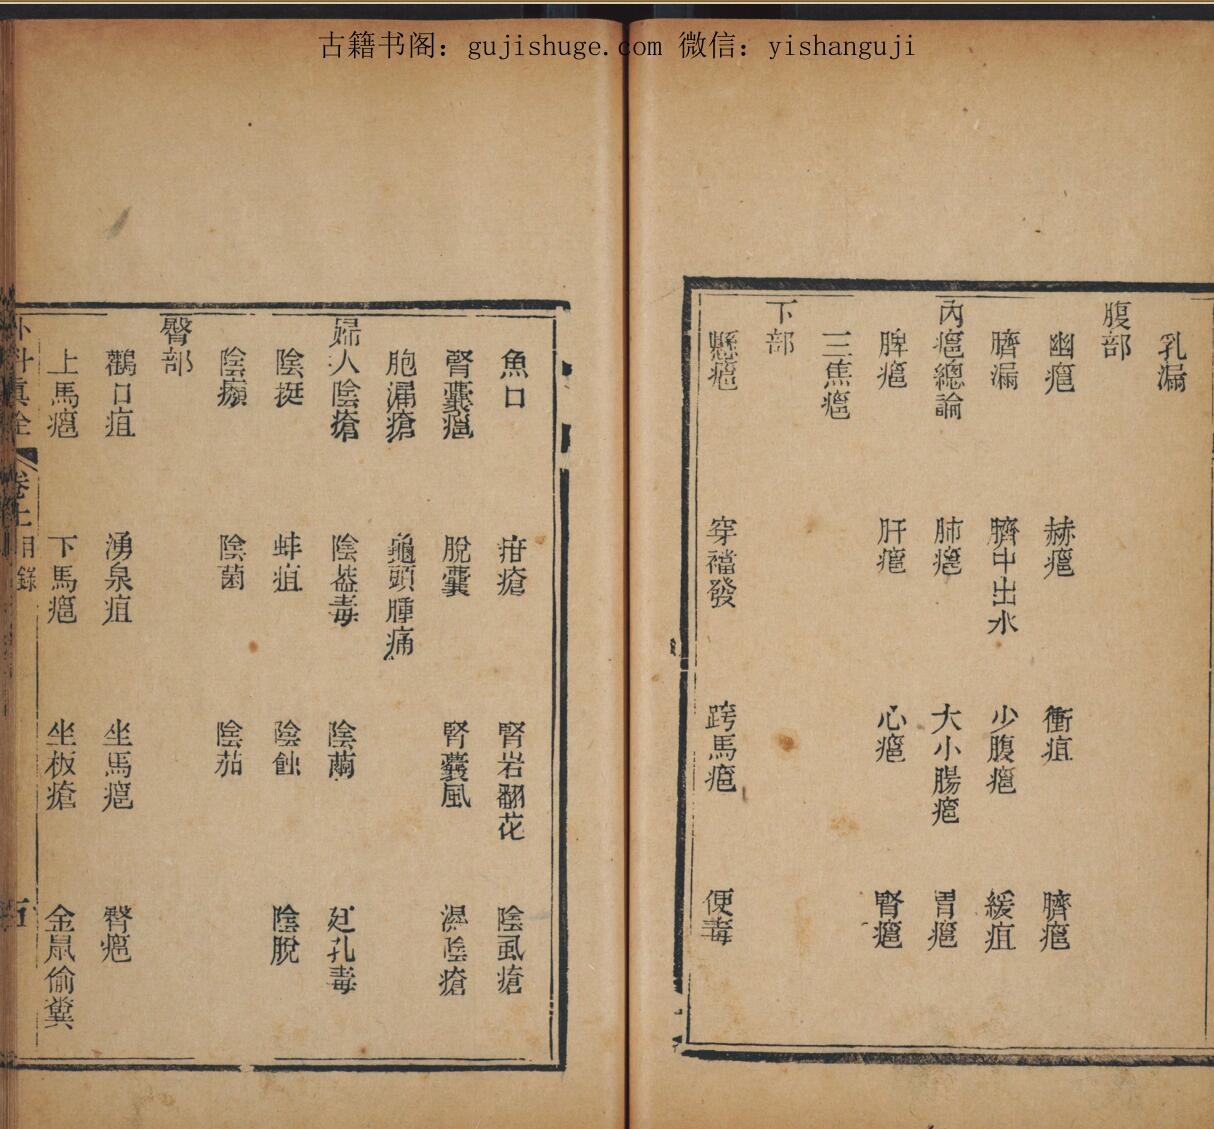 古籍书阁：gujishuge.com 微信：yishanguji
乳漏
腹部
幽癰 赫癰 衝疽 臍癰
臍漏 臍中出水 少腹癰 緩疽
內癰總論 肺癰 大小腸癰 胃癰
脾癰 肝癰 心癰 腎癰
三焦癰
下部
懸癰 穿襠發 跨馬癰 便毒
魚口 疳瘡 腎岩翻花 陰虱瘡
腎囊癰 脫囊 腎囊風 濕陰瘡
胞漏瘡 龜頭腫痛
婦人陰瘡 陰𧏾毒 陰繭 廷孔毒
陰挺 蚌疽 陰蝕 陰脫
陰㿗 陰菌 陰茄
臀部
鸛口疽 湧泉疽 坐馬癰 臀癰
上馬癰 下馬癰 坐板瘡 金鼠偷糞
外科真全 卷上目錄 五